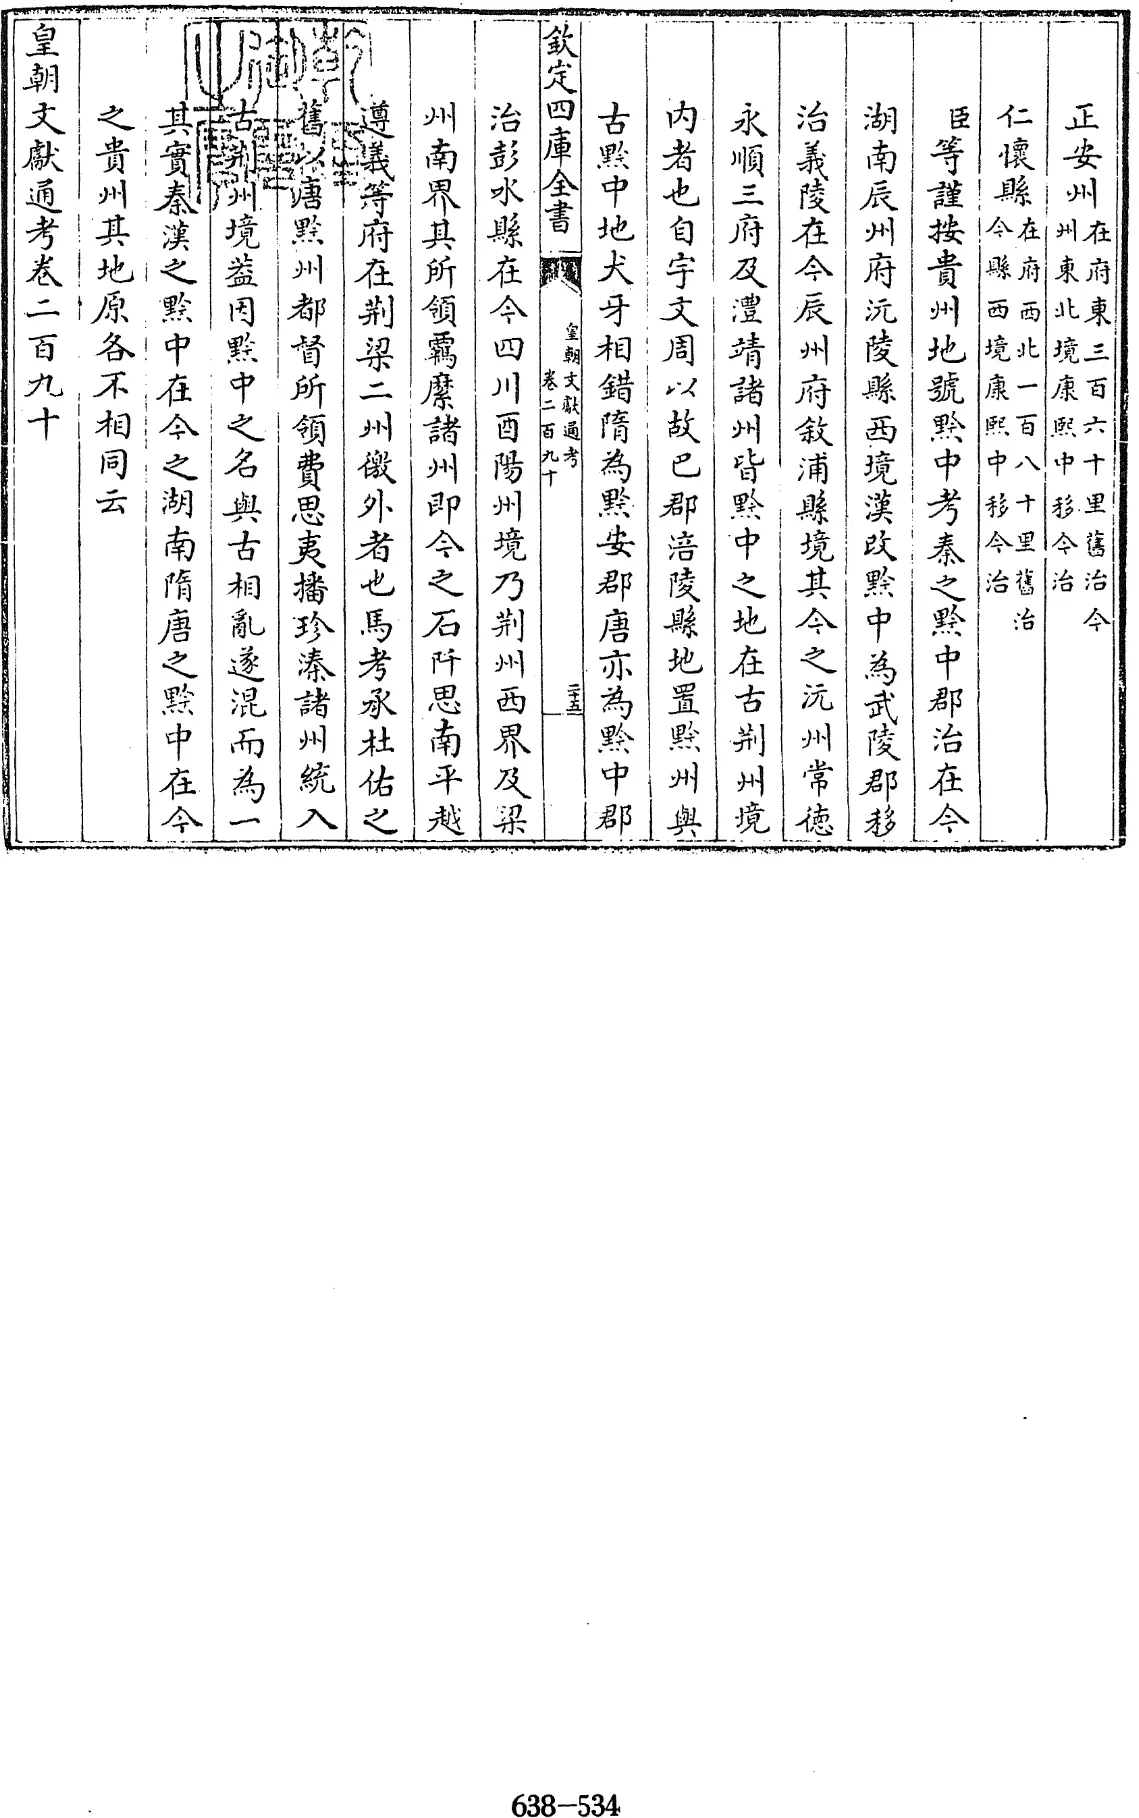 正安州在府東三百六十里舊治今州東北境康熙中移今治
仁懷縣在府西北一百八十里舊治今縣西境康熙中移今治
臣等謹按貴州地號黔中考秦之黔中郡治在今
湖南辰州府沅陵縣西境漢改黔中為武陵郡移
治義陵在今辰州府敘浦縣境其今之沅州常德
永順三府及澧靖諸州皆黔中之地在古荆州境
内者也自宇文周以故巴郡涪陵縣地置黔州與
古黔中地犬牙相錯隋為黔安郡唐亦為黔中郡
欽定四庫全書
皇朝文獻通考
卷二百九十
二十五
治彭水縣在今四川酉陽州境乃荆州西界及梁
州南界其所領羈縻諸州即今之石阡思南平越
遵義等府在荆梁二州徼外者也馬考承杜佑之
舊以唐黔州都督所領費思夷播珍溱諸州統入
古荆州境葢因黔中之名與古相亂遂混而為一
其實秦漢之黔中在今之湖南隋唐之黔中在今
之貴州其地原各不相同云
皇朝文獻通考卷二百九十
638-534